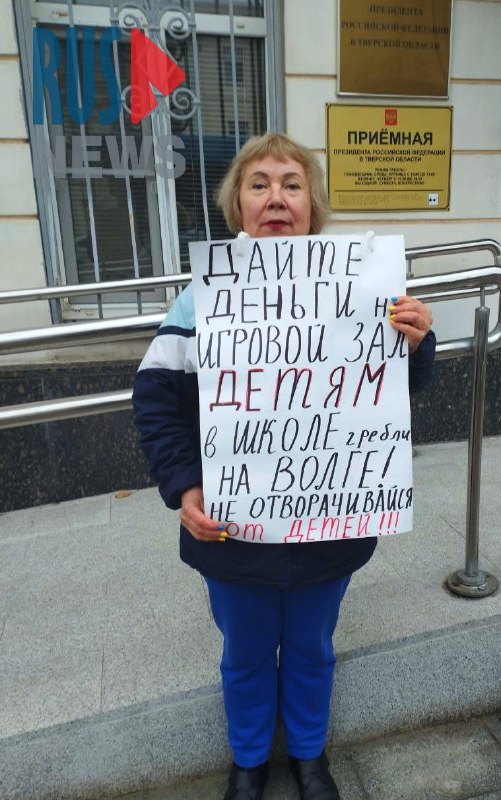 RUS
NEWS
ПРЕЗИДЕНТА
РОССИЙСКОЙ ФЕДЕРАЦИИ
В ТВЕРСКОЙ ОБЛАСТИ
ПРИЁМНАЯ
ПРЕЗИДЕНТА РОССИЙСКОЙ ФЕДЕРАЦИИ
В ТВЕРСКОЙ ОБЛАСТИ
ДАЙТЕ
ДЕНЬГИ Н
ИГРОВОЙ ЗАЛ
ДЕТЯМ
в ШКОЛЕ гребли
НА ВОЛГЕ!
НЕ ОТВОРАЧИВАЙСЯ
от ДЕТЕЙ!!!